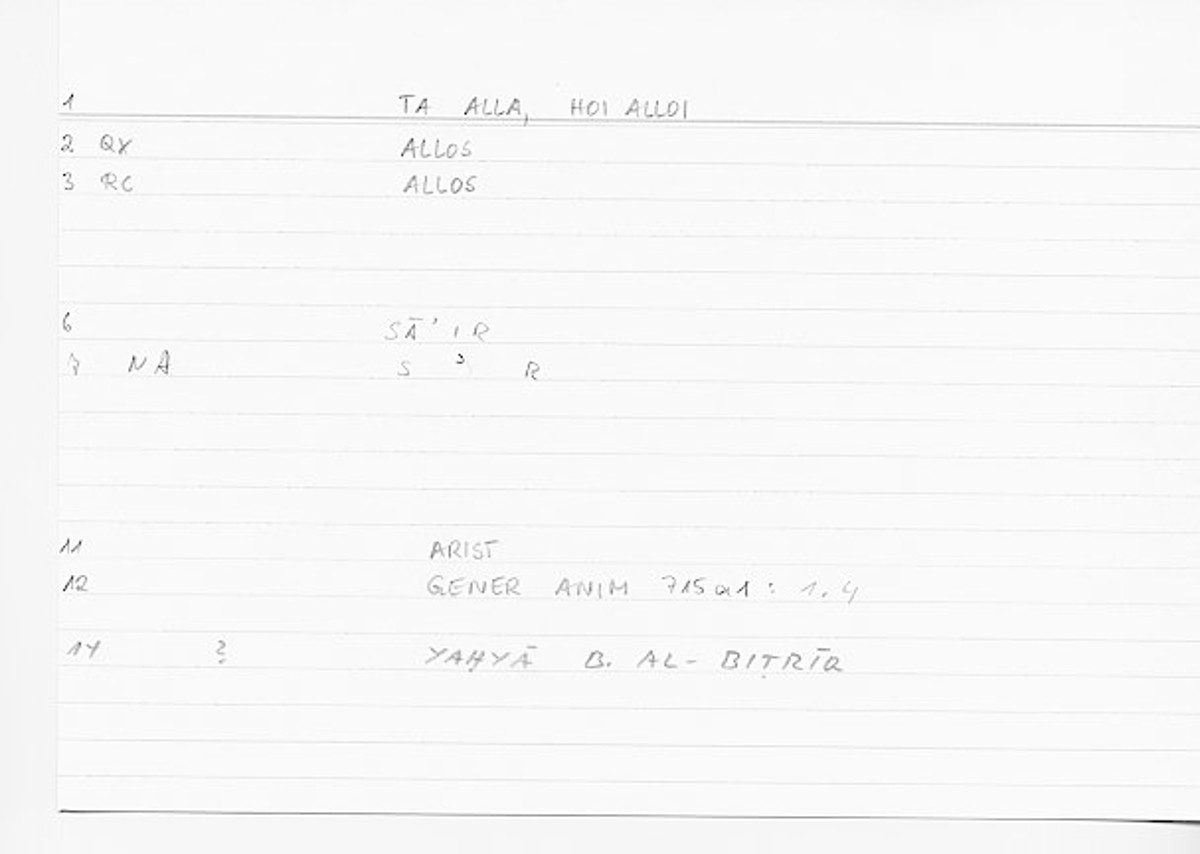 1 TA ALLA, HOI ALLOI
2 QY ALLOS
3 RC ALLOS
6 SĀʾIR
7 NA S ʾ R
11 ARIST
12 GENER ANIM 715a1 : 1.4
14 ? YAḤYĀ B. AL-BIṬRĪQ